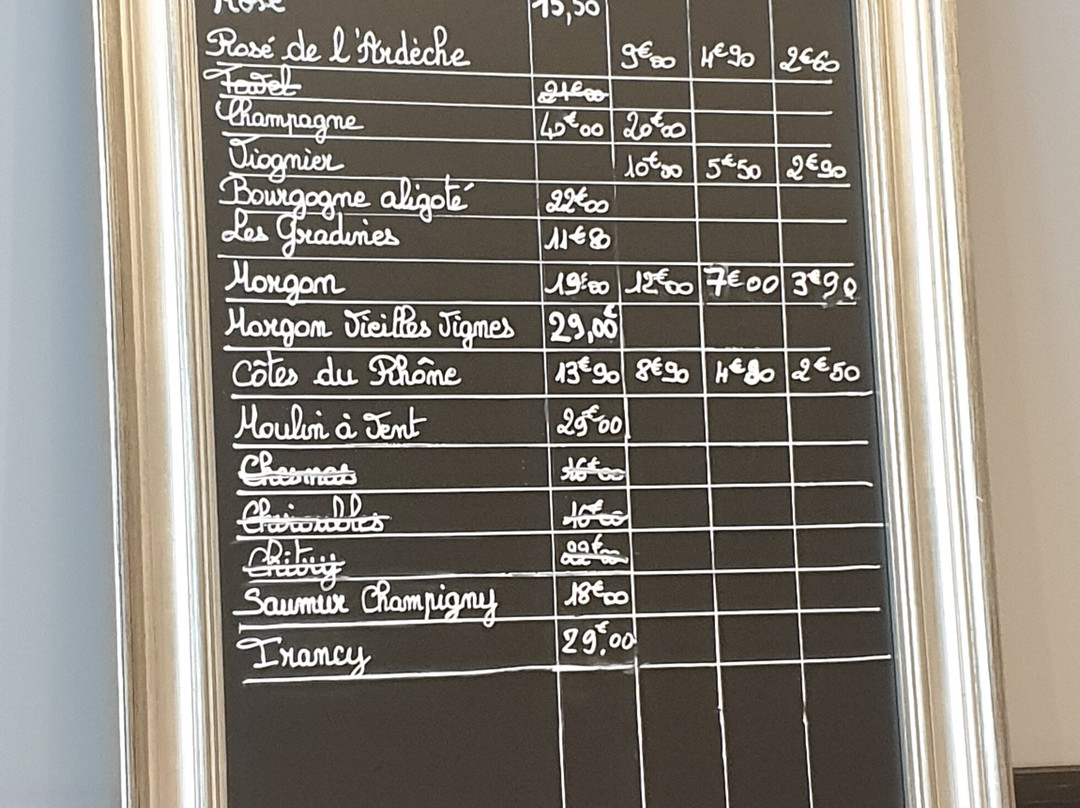 Rosé 15,50
Rosé de l'Ardèche 9€80 4€90 2€60
Tavel 21€00
Champagne 40€00 20€00
Viognier 10€90 5€50 2€90
Bourgogne aligoté 22€00
Les Gradines 11€80
Morgon 19€80 12€00 7€00 3€90
Morgon Vieilles Vignes 29,00€
Côtes du Rhône 13€90 8€90 4€80 2€50
Moulin à Vent 29€00
Chesnas 16€00
Chiroubles 16€00
Chitry 22€00
Saumur Champigny 18€00
Irancy 29€00